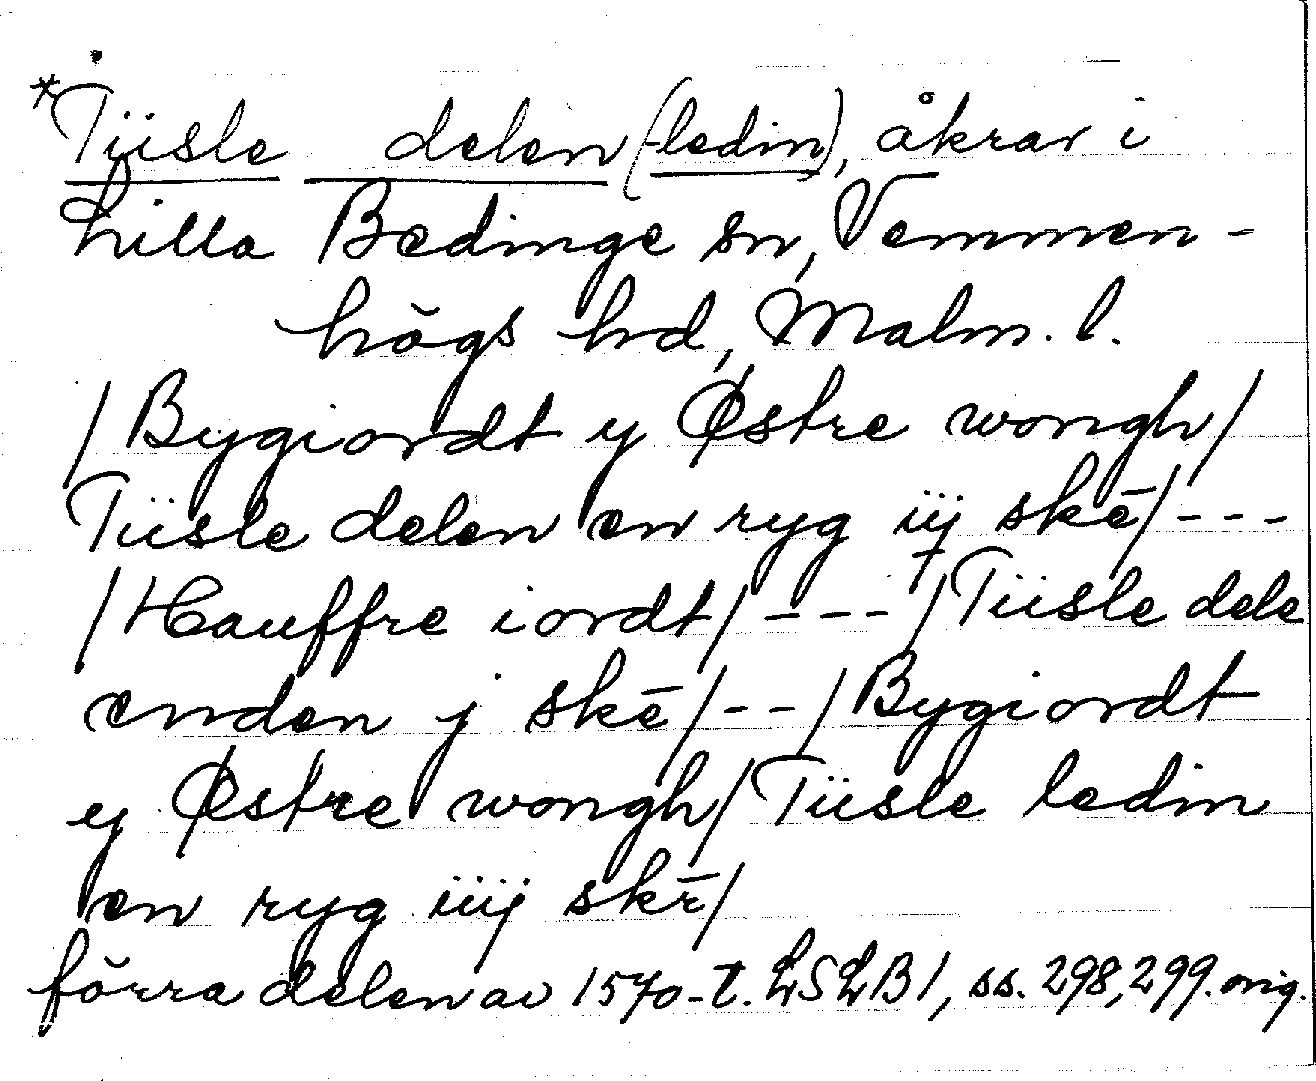 *Tüsle delen (-ledin), åkrar i
Lilla Bedinge sn, Vemmen-
högs hd, Malm. l.
/Bygiordt y Østre wongh/
Tüsle delen en ryg iij skē/---
/Hauffre iordt/---/Tüsle dele
enden j skē/--/Bygiordt
y Østre wongh/Tüsle ledin
en ryg iiij skr̄/
förra delen av 1570-t. LSLB 1, ss. 298, 299. orig.